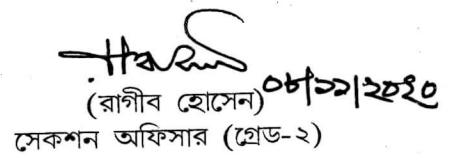 ০৮/১১/২০২০
(রাগীব হোসেন)
সেকশন অফিসার (গ্রেড-২)